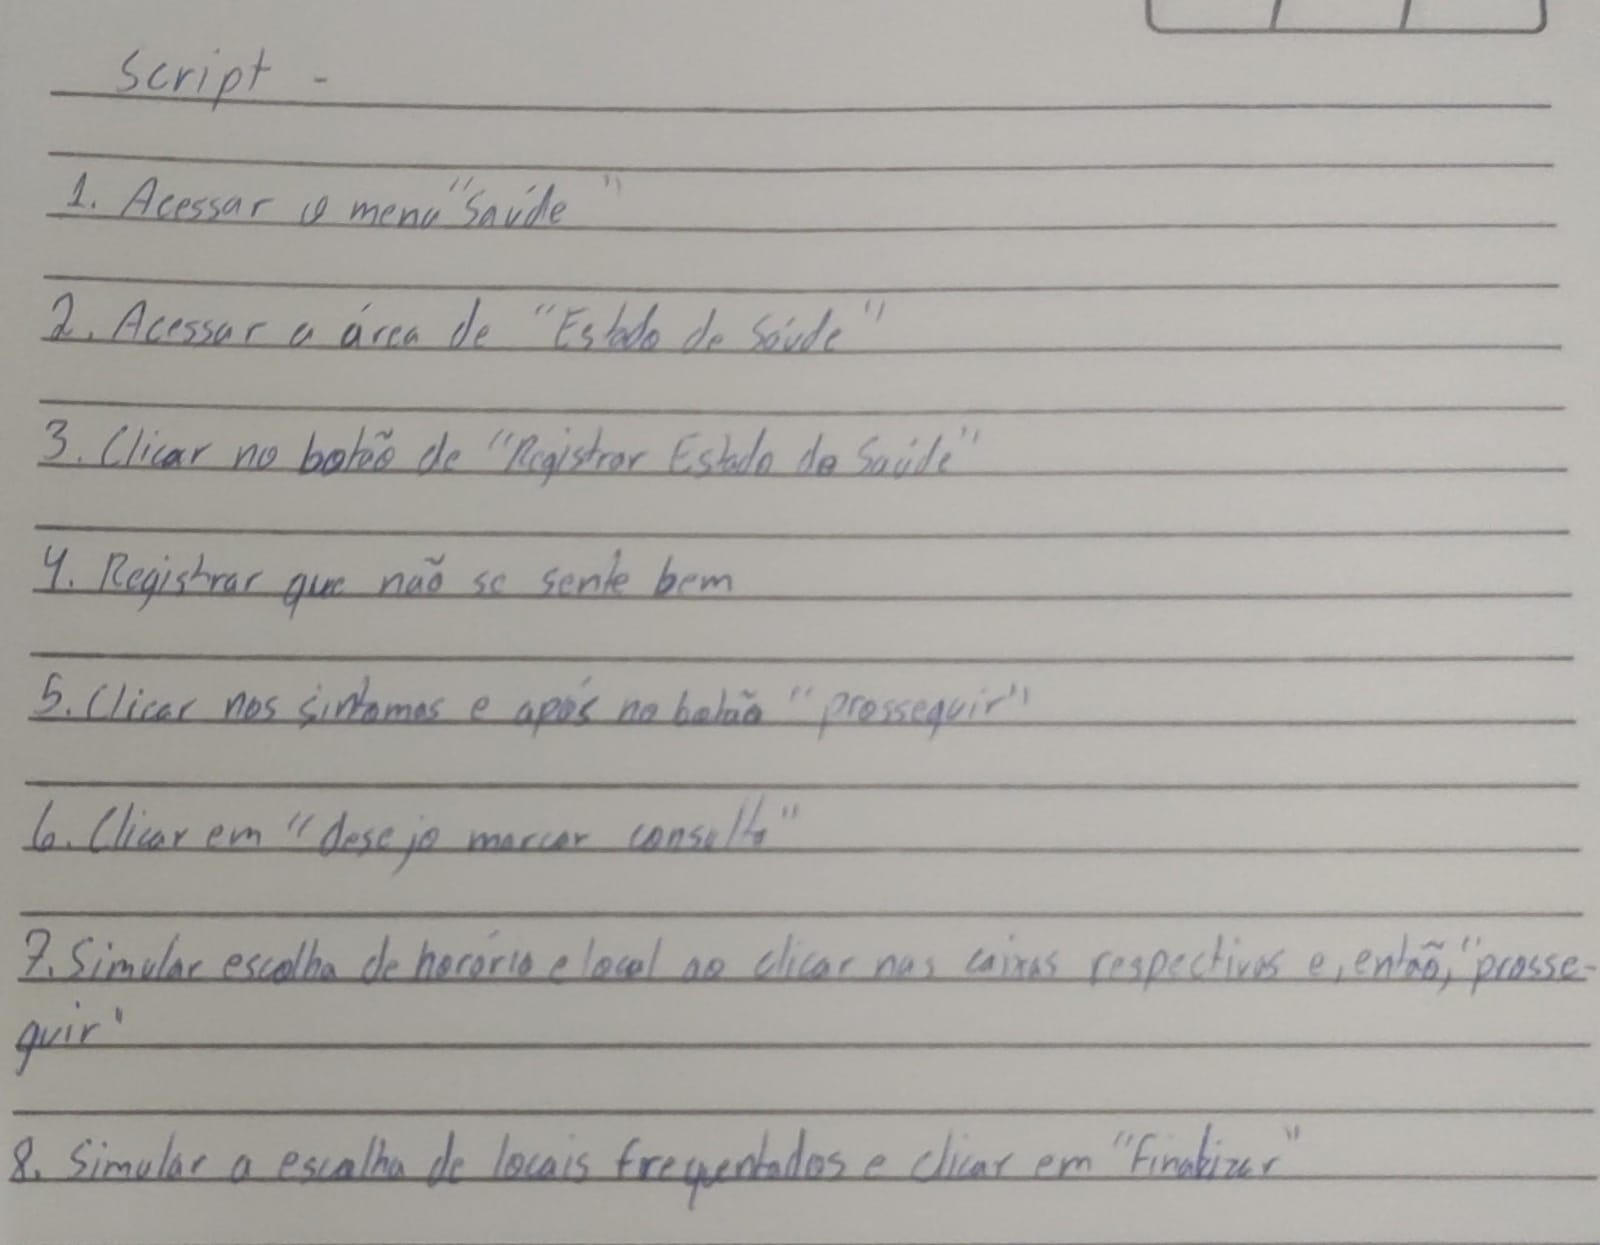 Script -
1. Acessar o menu "Saúde"
2. Acessar a área de "Estado de Saúde"
3. Clicar no botão de "Registrar Estado de Saúde"
4. Registrar que não se sente bem
5. Clicar nos sintomas e após no botão "prosseguir"
6. Clicar em "desejo marcar consulta"
7. Simular escolha de horário e local ao clicar nas caixas respectivas e, então, "prosse-
guir"
8. Simular a escolha de locais frequentados e clicar em "Finalizar"